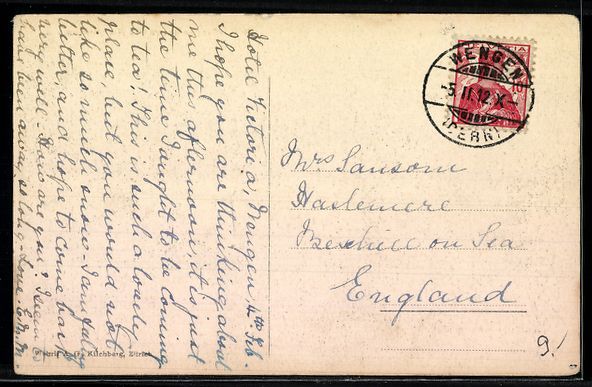 Hotel Victoria, Wengen, 4th Feb.
I hope you are thinking about
me this afternoon, it is just
the time I ought to be coming
to tea! This is such a lovely
place, but you would not
like so much snow - I am feeling
better, and hope to come back
very well - How are you? I seem to
have been away so long - Love. E.M.M
Kilchberg, Zürich
HELVETIA
10
WENGEN
-5.II.12.X-
(BERN)
Mrs Sansom
Haslemere
Bexhill on Sea
England
9.!